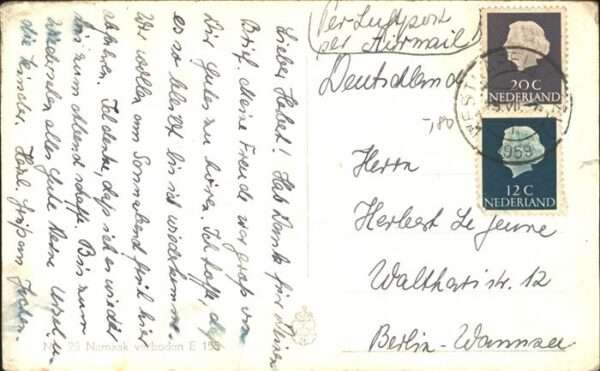 Per Luftpost
per Airmail!
Deutschland
-,80
Herrn
Herbert Le Jeune
Waltharistr. 12
Berlin-Wannsee
20 C
NEDERLAND
12 C
NEDERLAND
WEST
1959
Lieber Herbert! Hab Dank für Deinen
Brief. Meine Freude war groß von
Dir Gutes zu hören. Ich hoffe, daß
es so bleibt bis ich wiederkomme.
Wir wollen am Sonnabend früh hier
abfahren. Ich denke, daß ich es wieder
bis zum Abend schaffe. Bis zum
Wiedersehen alles Gute Deine
die Kinder. Herzl.
Nadruk verboden E 155